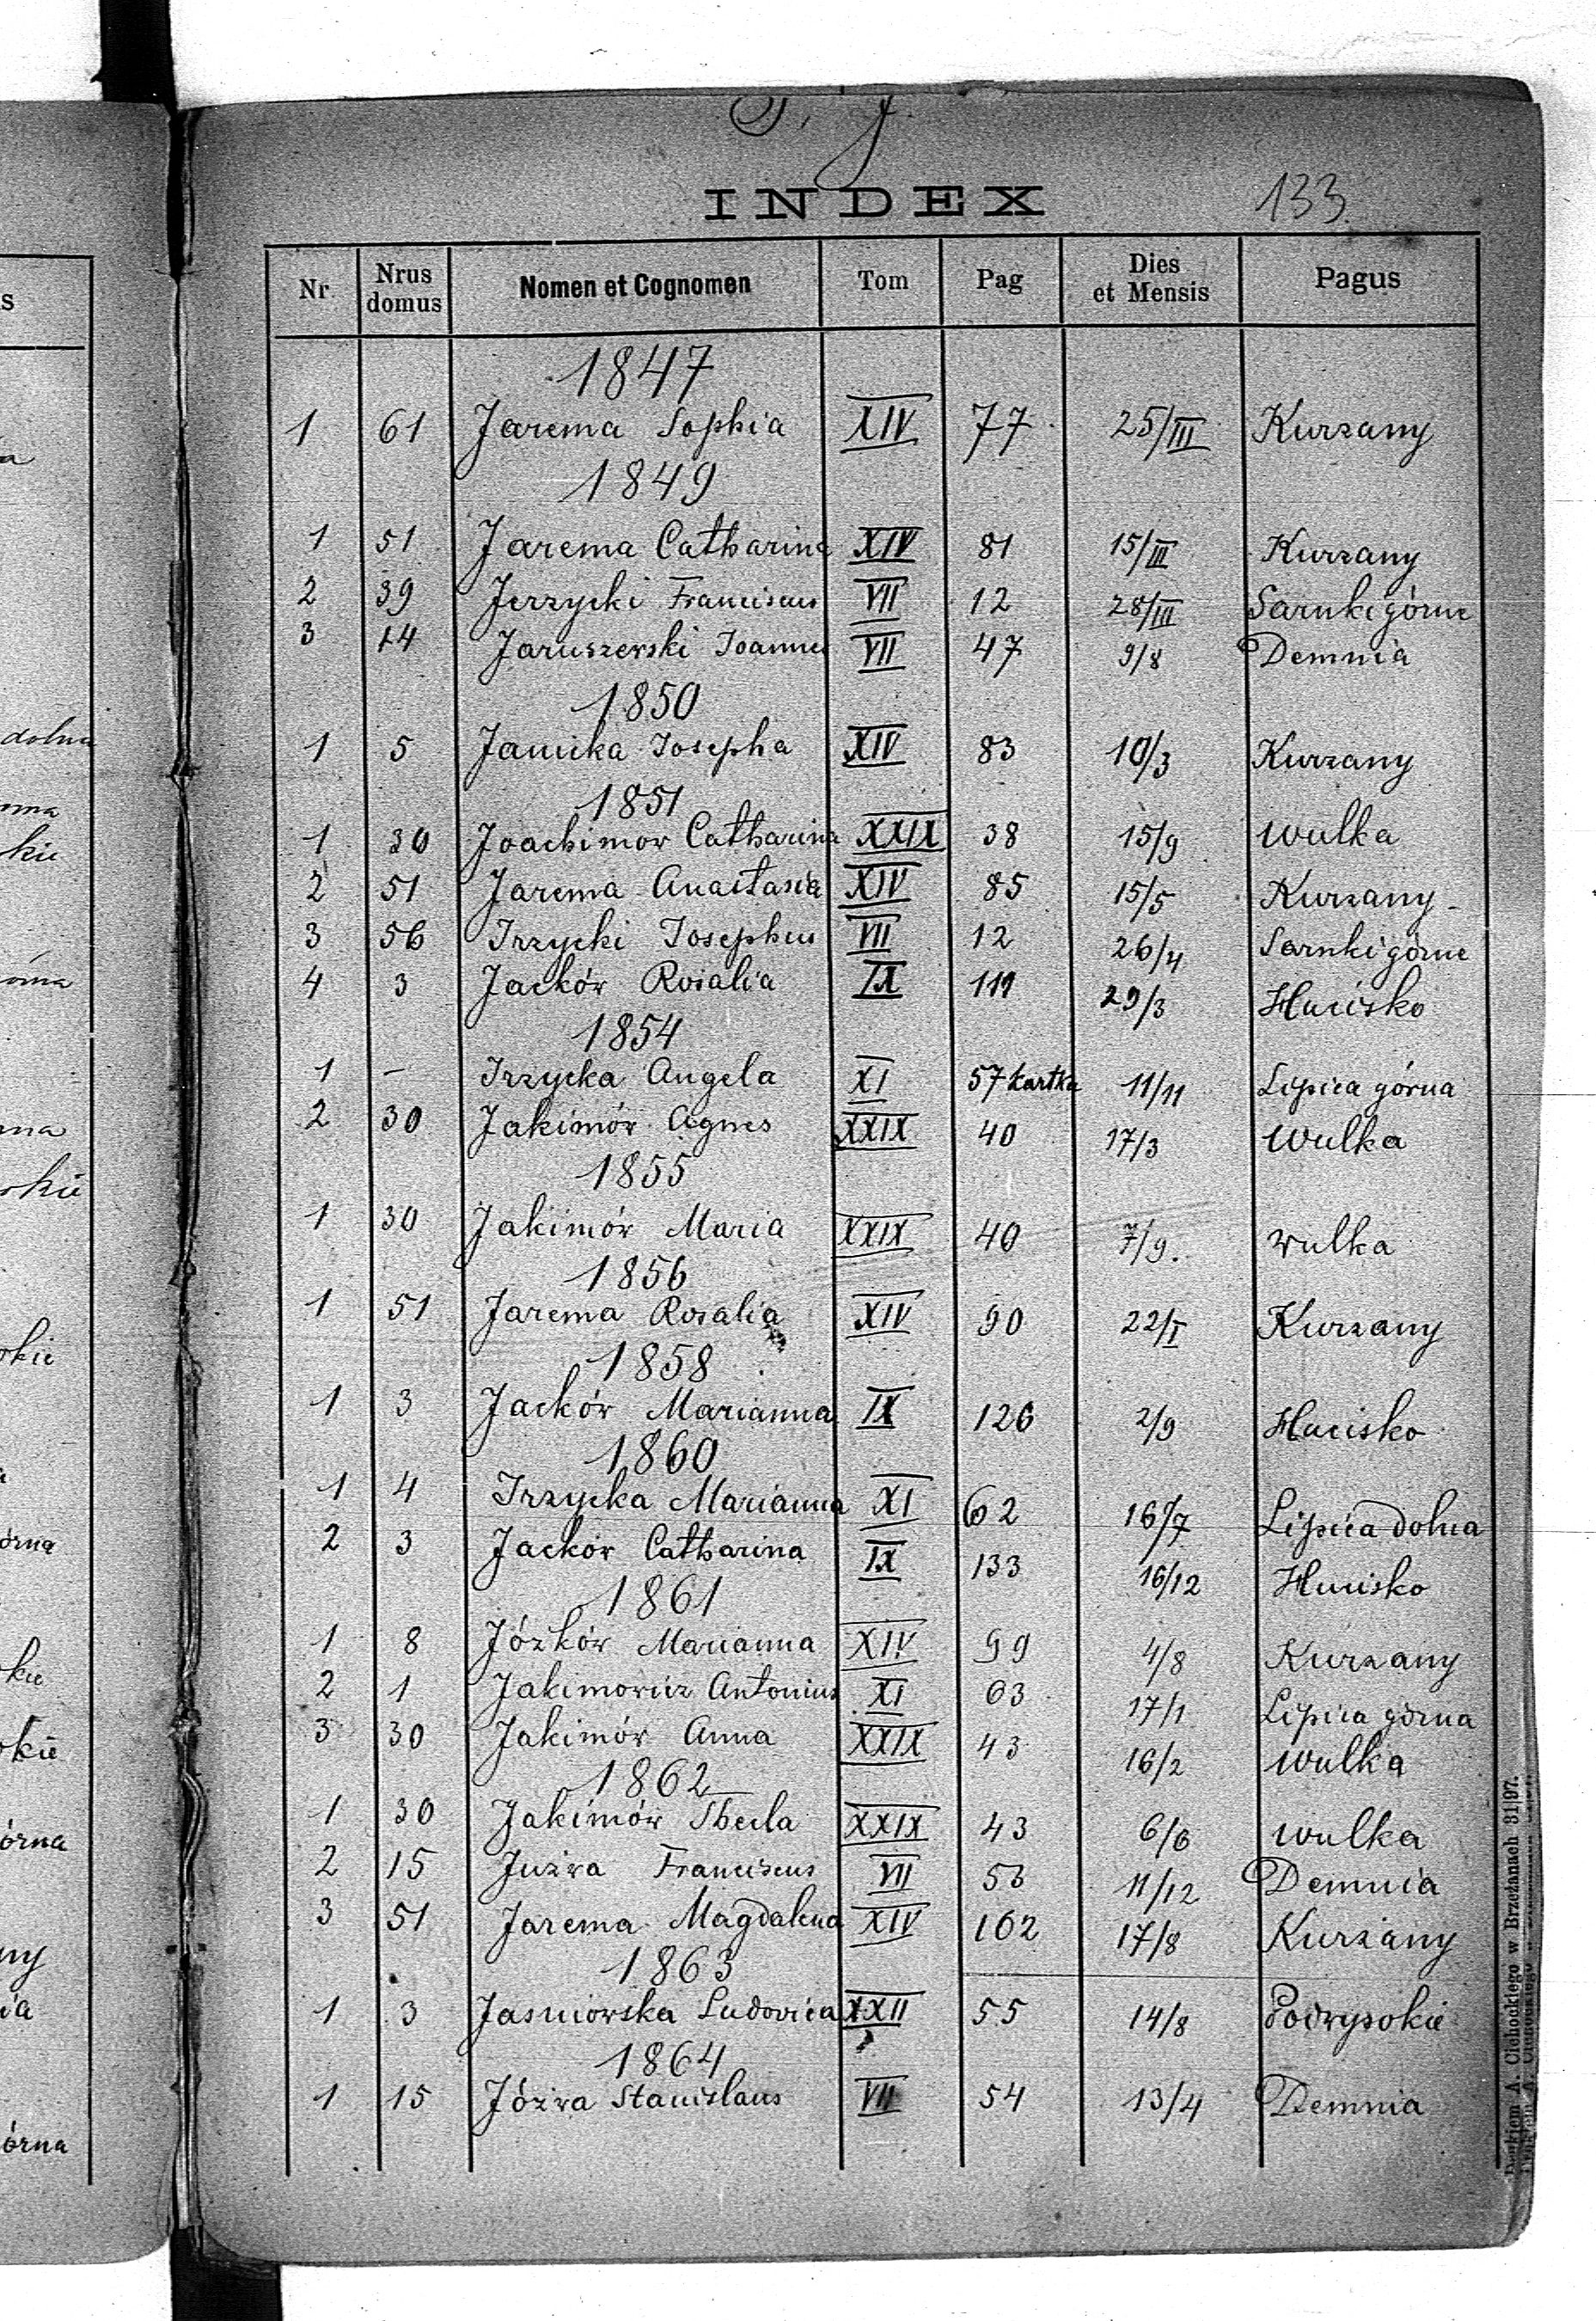 J. j.
INDEX 133
Nr Nrus domus Nomen et Cognomen Tom Pag Dies et Mensis Pagus
1847
1 61 Jarema Sophia XIV 77 25/III Kurzany
1849
1 51 Jarema Catharina XIV 81 15/III Kurzany
2 39 Jerzycki Franciscus VII 12 28/III Sarnki górne
3 14 Jaruszewski Joannes VII 47 9/8 Demnia
1850
1 5 Janicka Josepha XIV 83 10/3 Kurzany
1851
1 30 Joachimow Catharina XXIX 38 15/9 Wulka
2 51 Jarema Anastasia XIV 85 15/5 Kurzany
3 56 Irzycki Josephus VII 12 26/4 Sarnki górne
4 3 Jacków Rosalia IX 119 29/3 Hucisko
1854
1 – Irzycka Angela XI 57 kartka 11/11 Lipica górna
2 30 Jakimów Agnes XXIX 40 17/3 Wulka
1855
1 30 Jakimów Maria XXIX 40 7/9. Wulka
1856
1 51 Jarema Rosalia XIV 90 22/I Kurzany
1858
1 3 Jacków Marianna IX 126 2/9 Hucisko
1860
1 4 Irzycka Marianna XI 62 16/7 Lipica dolna
2 3 Jacków Catharina IX 133 16/12 Hucisko
1861
1 8 Józków Marianna XIV 99 4/8 Kurzany
2 1 Jakimowicz Antonius XI 63 17/1 Lipica górna
3 30 Jakimów Anna XXIX 43 16/2 Wulka
1862
1 30 Jakimów Thecla XXIX 43 6/6 Wulka
2 15 Juźwa Franciscus VII 53 11/12 Demnia
3 51 Jarema Magdalena XIV 102 17/8 Kurzany
1863
1 3 Jasniowska Ludovica XXII 55 14/8 Podwysokie
1864
1 15 Józwa Stanislaus VII 54 13/4 Demnia
Drukiem A. Cichockiego w Brzeżanach 31|97.